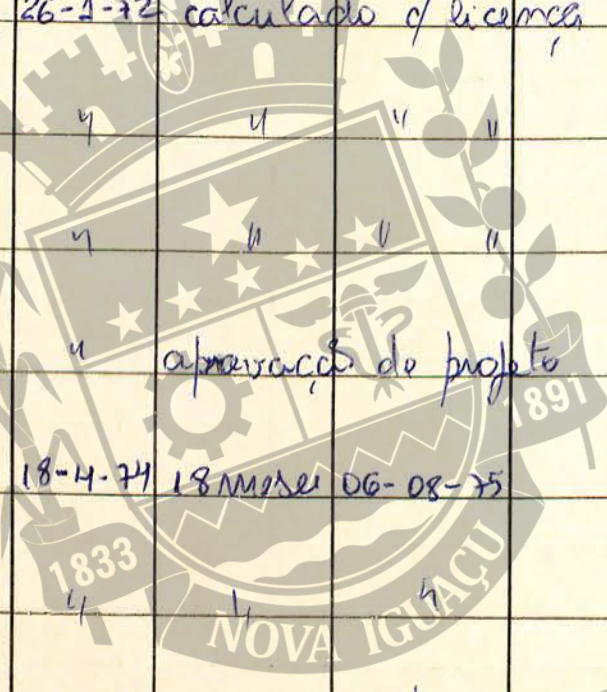 26-1-72 calculado c/ licença
" " " "
" " " "
" aprovação do projeto
1891
18-4-74 18 meses 06-08-75
1833
" " "
NOVA IGUAÇU